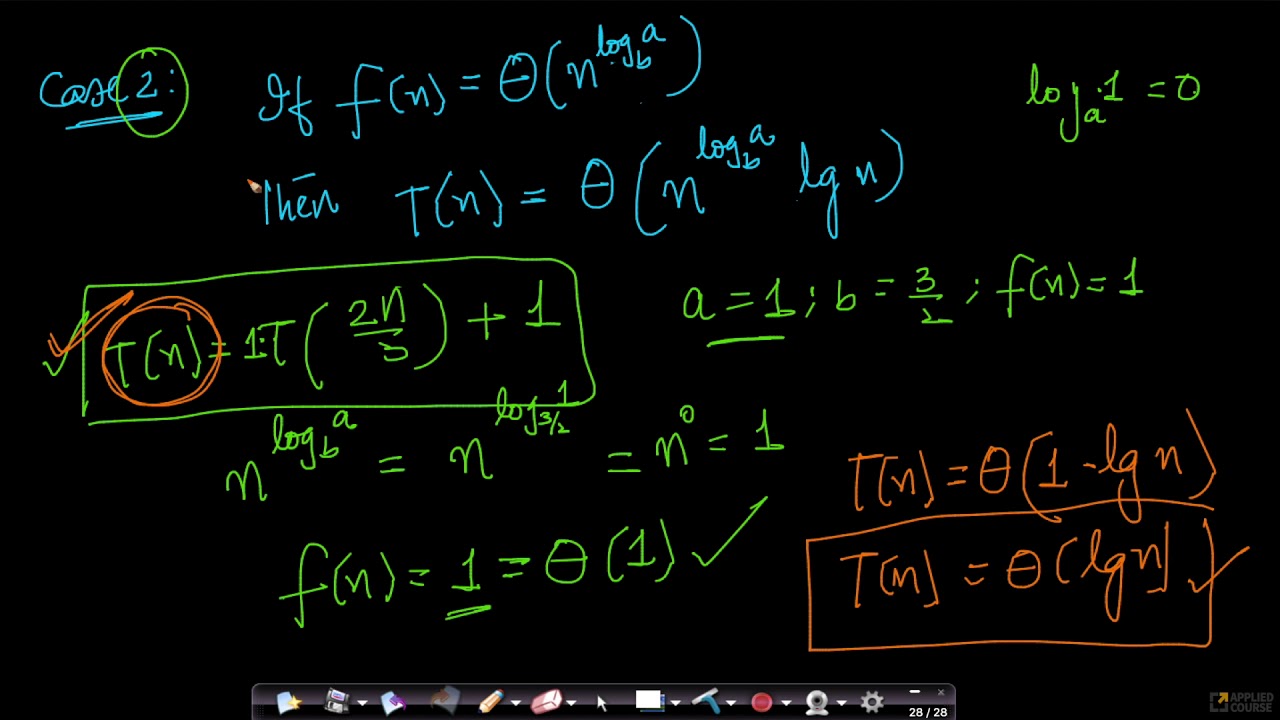 Case 2:
If f(n) = Θ(n^{log_b a})
log_a 1 = 0
Then T(n) = Θ(n^{log_b a} lg n)
T(n) = 1·T(2n/3) + 1
a = 1; b = 3/2; f(n) = 1
n^{log_b a} = n^{log_{3/2} 1} = n^0 = 1
T(n) = Θ(1·lg n)
f(n) = 1 = Θ(1) ✓
T(n) = Θ(lg n) ✓
28 / 28
APPLIED
COURSE